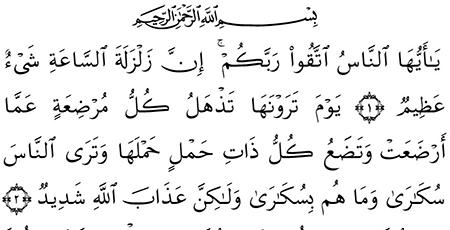 بِسْمِ اللَّهِ الرَّحْمَٰنِ الرَّحِيمِ
يَـٰٓأَيُّهَا ٱلنَّاسُ ٱتَّقُوا۟ رَبَّكُمْ ۚ إِنَّ زَلْزَلَةَ ٱلسَّاعَةِ شَىْءٌ
عَظِيمٌ ﴿١﴾ يَوْمَ تَرَوْنَهَا تَذْهَلُ كُلُّ مُرْضِعَةٍ عَمَّآ
أَرْضَعَتْ وَتَضَعُ كُلُّ ذَاتِ حَمْلٍ حَمْلَهَا وَتَرَى ٱلنَّاسَ
سُكَـٰرَىٰ وَمَا هُم بِسُكَـٰرَىٰ وَلَـٰكِنَّ عَذَابَ ٱللَّهِ شَدِيدٌ ﴿٢﴾